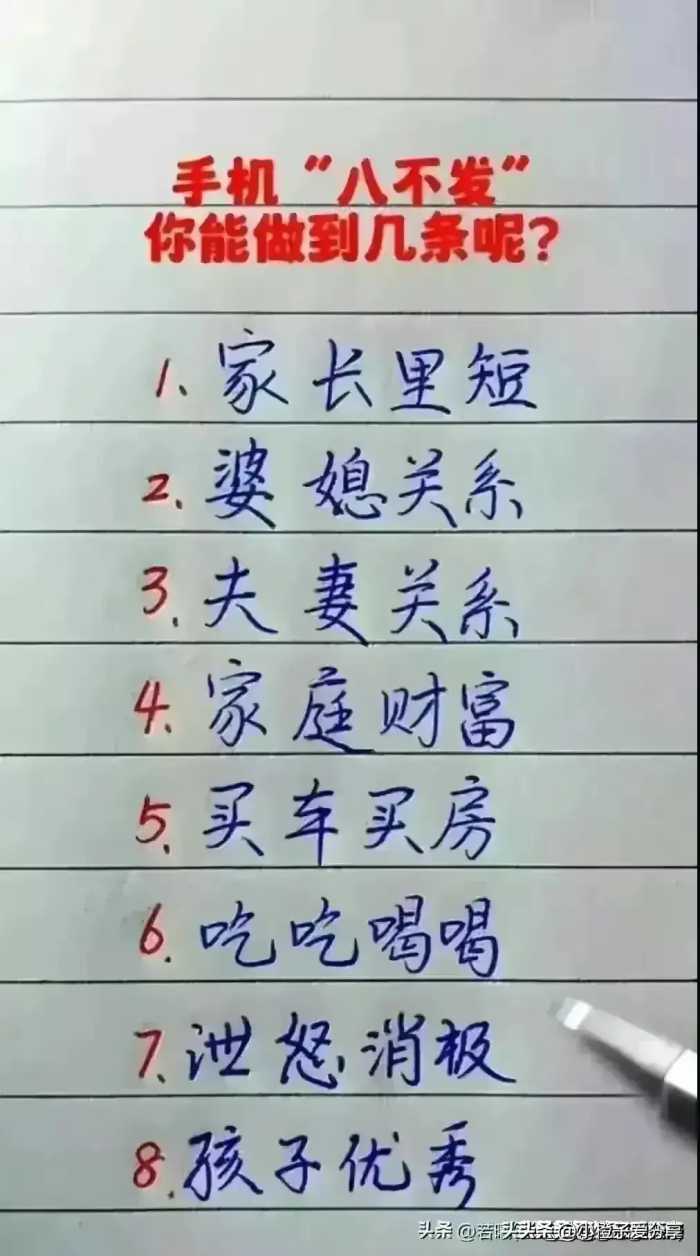 手机“八不发”
你能做到几条呢?
1、家长里短
2、婆媳关系
3、夫妻关系
4、家庭财富
5、买车买房
6、吃吃喝喝
7、泄怒消极
8、孩子优秀
头条 @若
头条 @小橙子爱分享